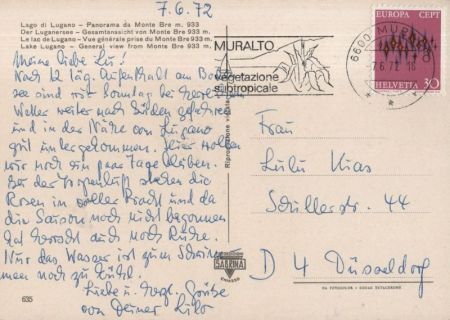 7.6.72
Lago di Lugano - Panorama da Monte Bre m. 933
Der Luganersee - Gesamtansicht von Monte Bre m. 933
Le lac de Lugano - Vue générale prise du Monte Bre m. 933
Lake Lugano - General view from Monte Bre m. 933
MURALTO
vegetazione
subtropicale
6600 MURALTO
-7.6.72 18
EUROPA CEPT
HELVETIA 30
Meine liebe Lu!
Nach 12 täg. Aufenthalt am Boden
see sind wir Sonntag bei
Wetter weiter nach Süden gefahren
und in der Nähe von Lugano
gut untergekommen. Hier wollen
wir noch ein paar Tage bleiben.
Bei der stehen die
Rosen in voller Pracht und da
die Saison noch nicht begonnen
hat herrscht auch noch Ruhe.
Nur das Wasser ist zum Schwim
men noch zu kühl.
Liebe u. herzl. Grüße
von Deiner Lilo
Frau
Lulu Kias
Schillerstr. 44
D 4 Düsseldorf
Riproduzione vietata
SABRINA
635